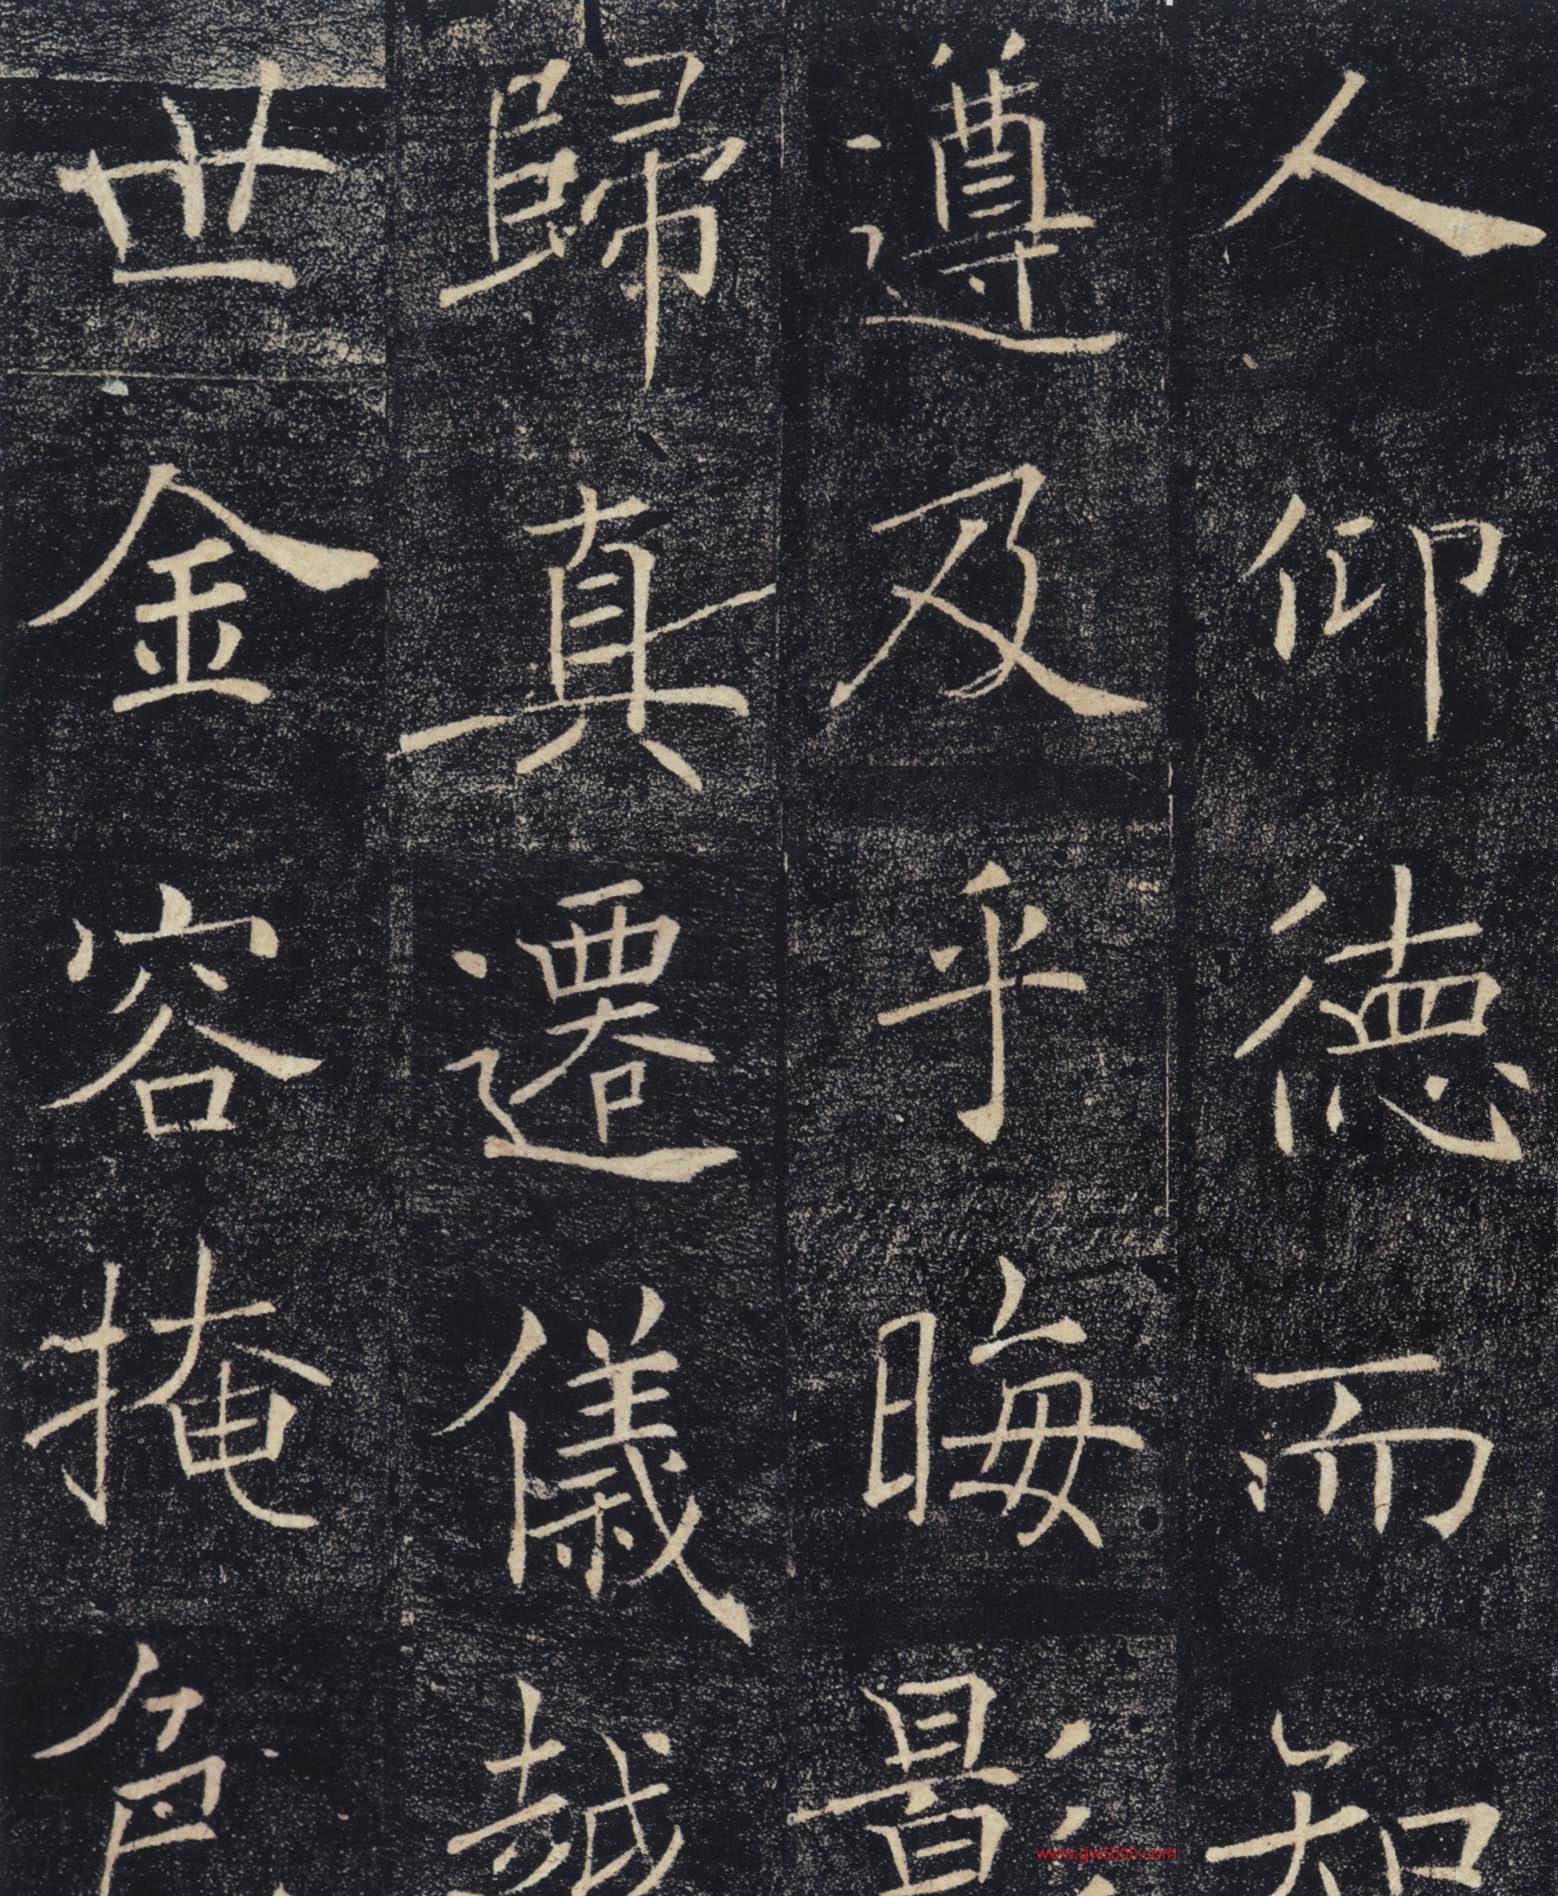 人仰德而知
遵及乎晦影
歸真遷儀越
世金容掩色
www.gw5000.com